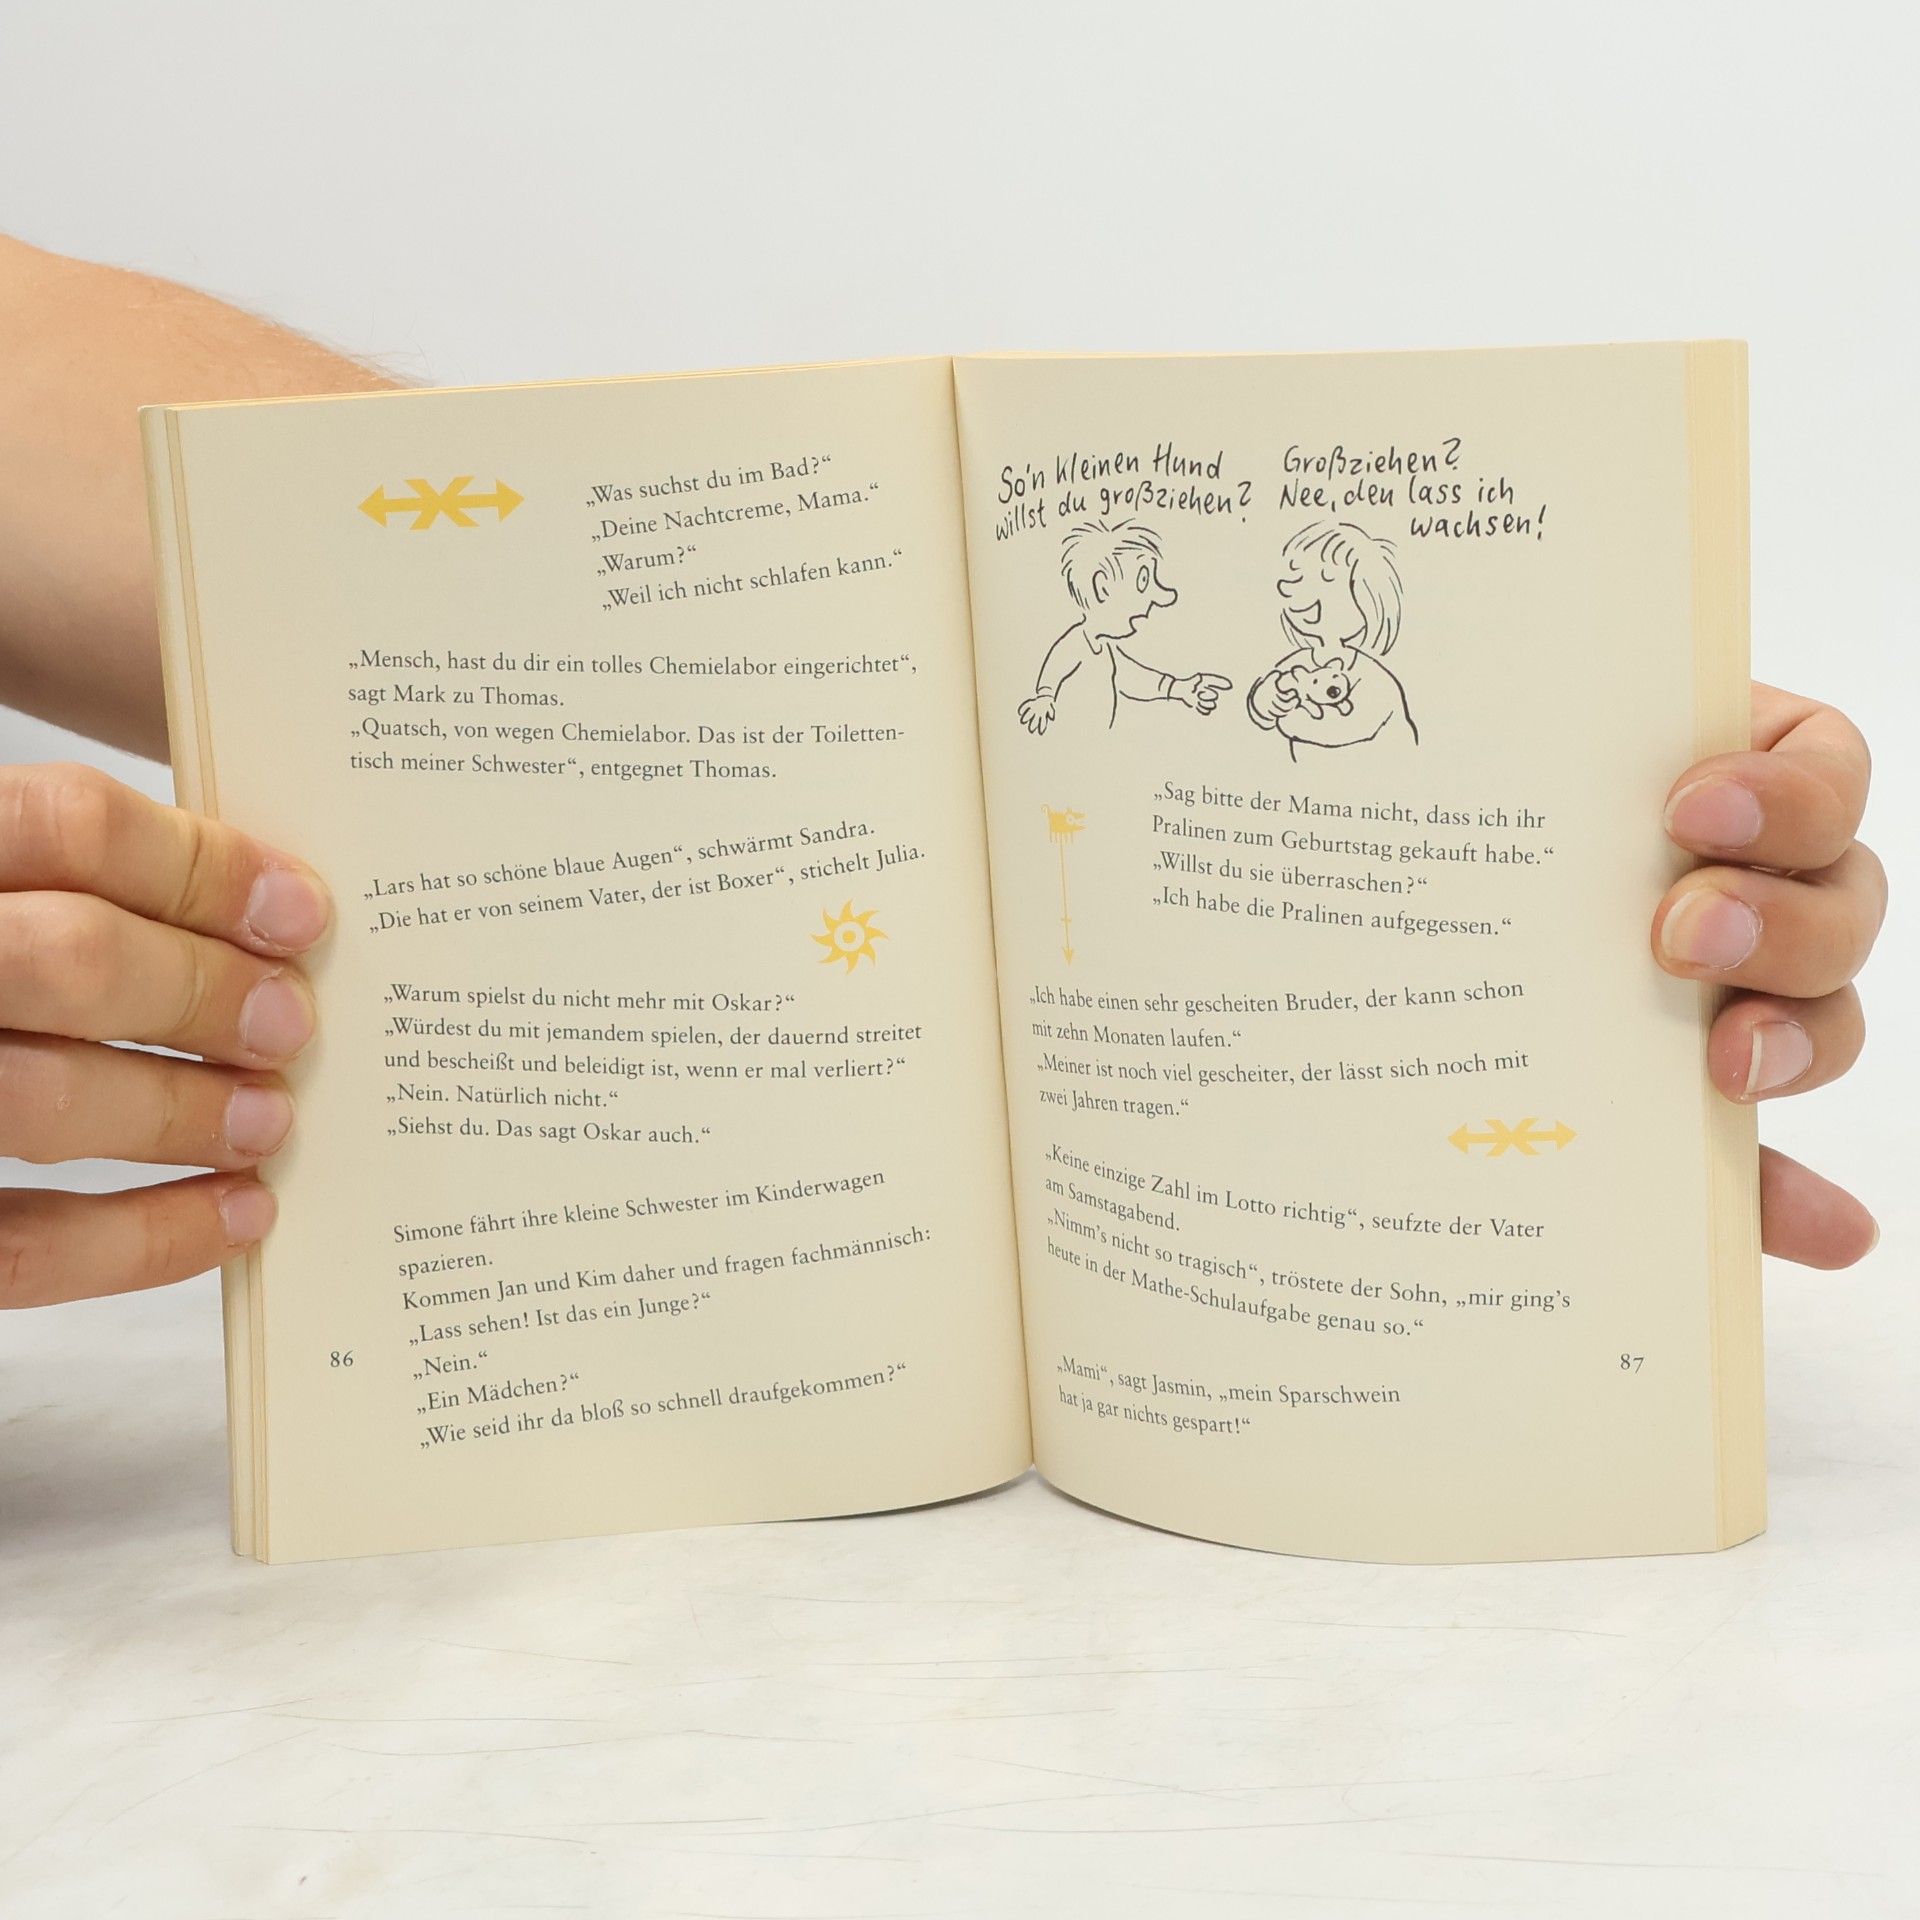 „Was suchst du im Bad?“
„Deine Nachtcreme, Mama.“
„Warum?“
„Weil ich nicht schlafen kann.“
„Mensch, hast du dir ein tolles Chemielabor eingerichtet“,
sagt Mark zu Thomas.
„Quatsch, von wegen Chemielabor. Das ist der Toiletten-
tisch meiner Schwester“, entgegnet Thomas.
„Lars hat so schöne blaue Augen“, schwärmt Sandra.
„Die hat er von seinem Vater, der ist Boxer“, stichelt Julia.
„Warum spielst du nicht mehr mit Oskar?“
„Würdest du mit jemandem spielen, der dauernd streitet
und bescheißt und beleidigt ist, wenn er mal verliert?“
„Nein. Natürlich nicht.“
„Siehst du. Das sagt Oskar auch.“
Simone fährt ihre kleine Schwester im Kinderwagen
spazieren.
Kommen Jan und Kim daher und fragen fachmännisch:
„Lass sehen! Ist das ein Junge?“
„Nein.“
„Ein Mädchen?“
„Wie seid ihr da bloß so schnell draufgekommen?“
86
So'n kleinen Hund
willst du großziehen?
Großziehen?
Nee, den lass ich
wachsen!
„Sag bitte der Mama nicht, dass ich ihr
Pralinen zum Geburtstag gekauft habe.“
„Willst du sie überraschen?“
„Ich habe die Pralinen aufgegessen.“
„Ich habe einen sehr gescheiten Bruder, der kann schon
mit zehn Monaten laufen.“
„Meiner ist noch viel gescheiter, der lässt sich noch mit
zwei Jahren tragen.“
„Keine einzige Zahl im Lotto richtig“, seufzte der Vater
am Samstagabend.
„Nimm's nicht so tragisch“, tröstete der Sohn, „mir ging's
heute in der Mathe-Schulaufgabe genau so.“
„Mami“, sagt Jasmin, „mein Sparschwein
hat ja gar nichts gespart!“
87